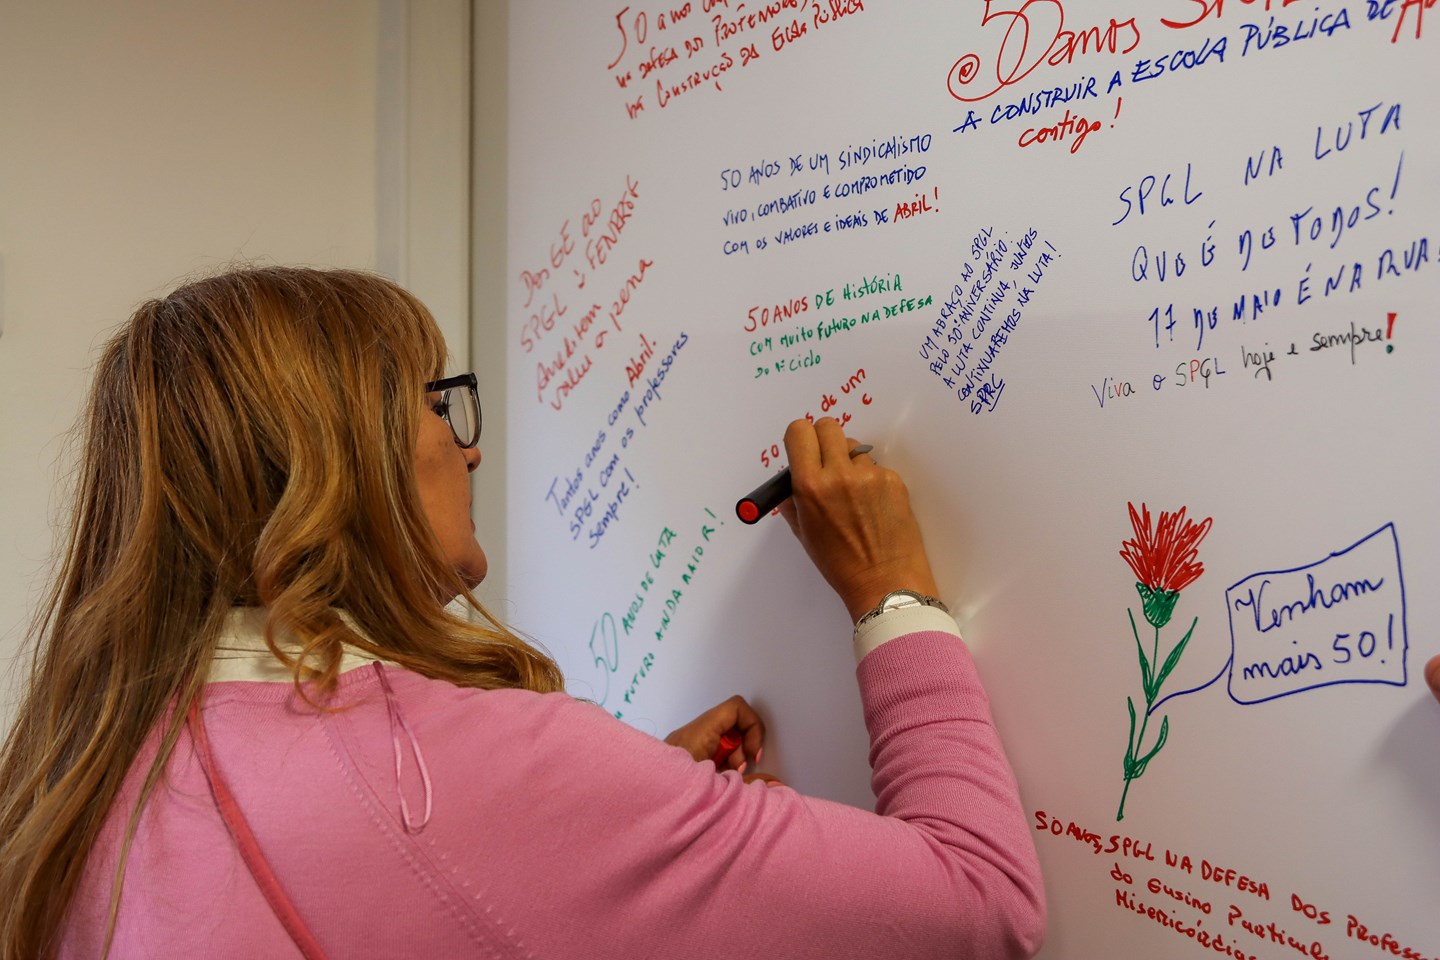 50 anos
na defesa dos Professores
na Construção da Escola Pública
50 anos
A CONSTRUIR A ESCOLA PÚBLICA DE
contigo!
50 ANOS DE UM SINDICALISMO
VIVO, COMBATIVO E COMPROMETIDO
COM OS VALORES E IDEAIS DE ABRIL!
SPGL NA LUTA
QUE É DE TODOS!
17 DE MAIO É NA RUA
Viva o SPGL hoje e sempre!
Do GE ao
SPGL à FENPROF
valeu a pena
Tantos anos como Abril.
SPGL com os professores
sempre!
50 ANOS DE HISTÓRIA
COM MUITO FUTURO NA DEFESA
DO 1º CICLO
UM ABRAÇO AO SPGL
PELO 50º ANIVERSÁRIO.
A LUTA CONTINUA, JUNTOS
CONTINUAREMOS NA LUTA!
SPRC
50 de um
e
50 ANOS DE LUTA
FUTURO AINDA MAIOR!
Venham
mais 50!
50 ANOS, SPGL NA DEFESA DOS
do Ensino
Misericórdias